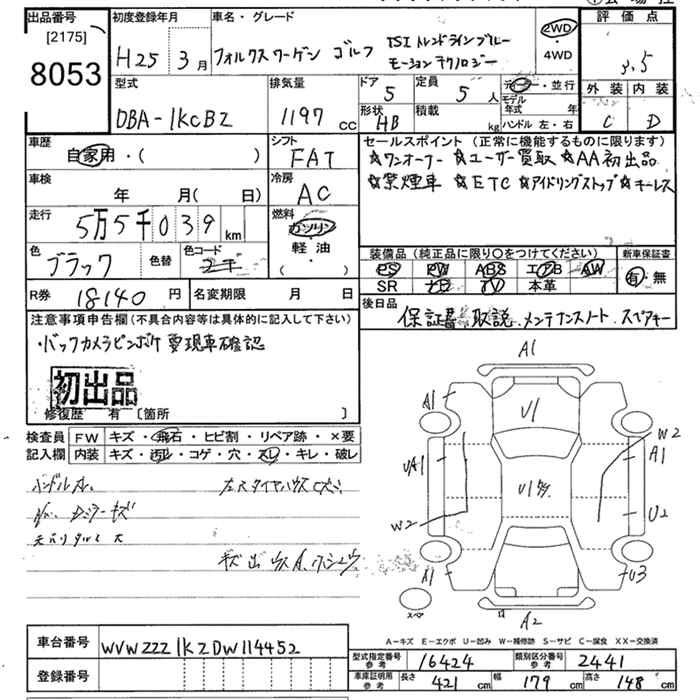 出品番号
[2175]
8053
初度登録年月
H25 3月
車名・グレード
フォルクスワーゲン ゴルフ
TSI トレンドラインブルー
モーションテクノロジー
2WD
・4WD
評価点
3.5
外装 内装
C D
型式
DBA-1KCBZ
排気量
1197 cc
ドア
5
定員
5 人
形状
HB
積載
kg
ディーラー・並行
モデル年式 年
ハンドル 左・右
車歴
自家用・( )
シフト
FAT
車検
年 月( 日)
冷房
AC
走行
5万5千039 km
燃料
ガソリン
・軽油
( )
色
ブラック
色替
色コード
R券
18140 円
名変期限 月 日
セールスポイント (正常に機能するものに限ります)
☆ワンオーナー ☆ユーザー買取 ☆AA初出品
☆禁煙車 ☆ETC ☆アイドリングストップ ☆キーレス
装備品 (純正品に限り○をつけてください)
新車保証書
PS PW ABS エアB AW
SR ナビ TV 本革
有・無
後日品
保証書 取説 メンテナンスノート スペアキー
注意事項申告欄(不具合内容等は具体的に記入して下さい)
・バックカメラピンボケ 要現車確認
初出品
修復歴 有 〔箇所 〕
検査員記入欄
FW キズ・飛石・ヒビ割・リペア跡・×要
内装 キズ・汚レ・コゲ・穴・スレ・キレ・破レ
ハンドルスレ
A1
A1
U1
W2
A1
UA1
W2
U2
A1
U3
スペア
A2
A-キズ E-エクボ U-凹み W-補修跡 S-サビ C-腐食 XX-交換済
車台番号
WVWZZZ1KZDW114452
登録番号
型式指定番号 参考
16424
類別区分番号 参考
2441
車庫証明 参考
長さ 421 cm 幅 179 cm 高さ 148 cm